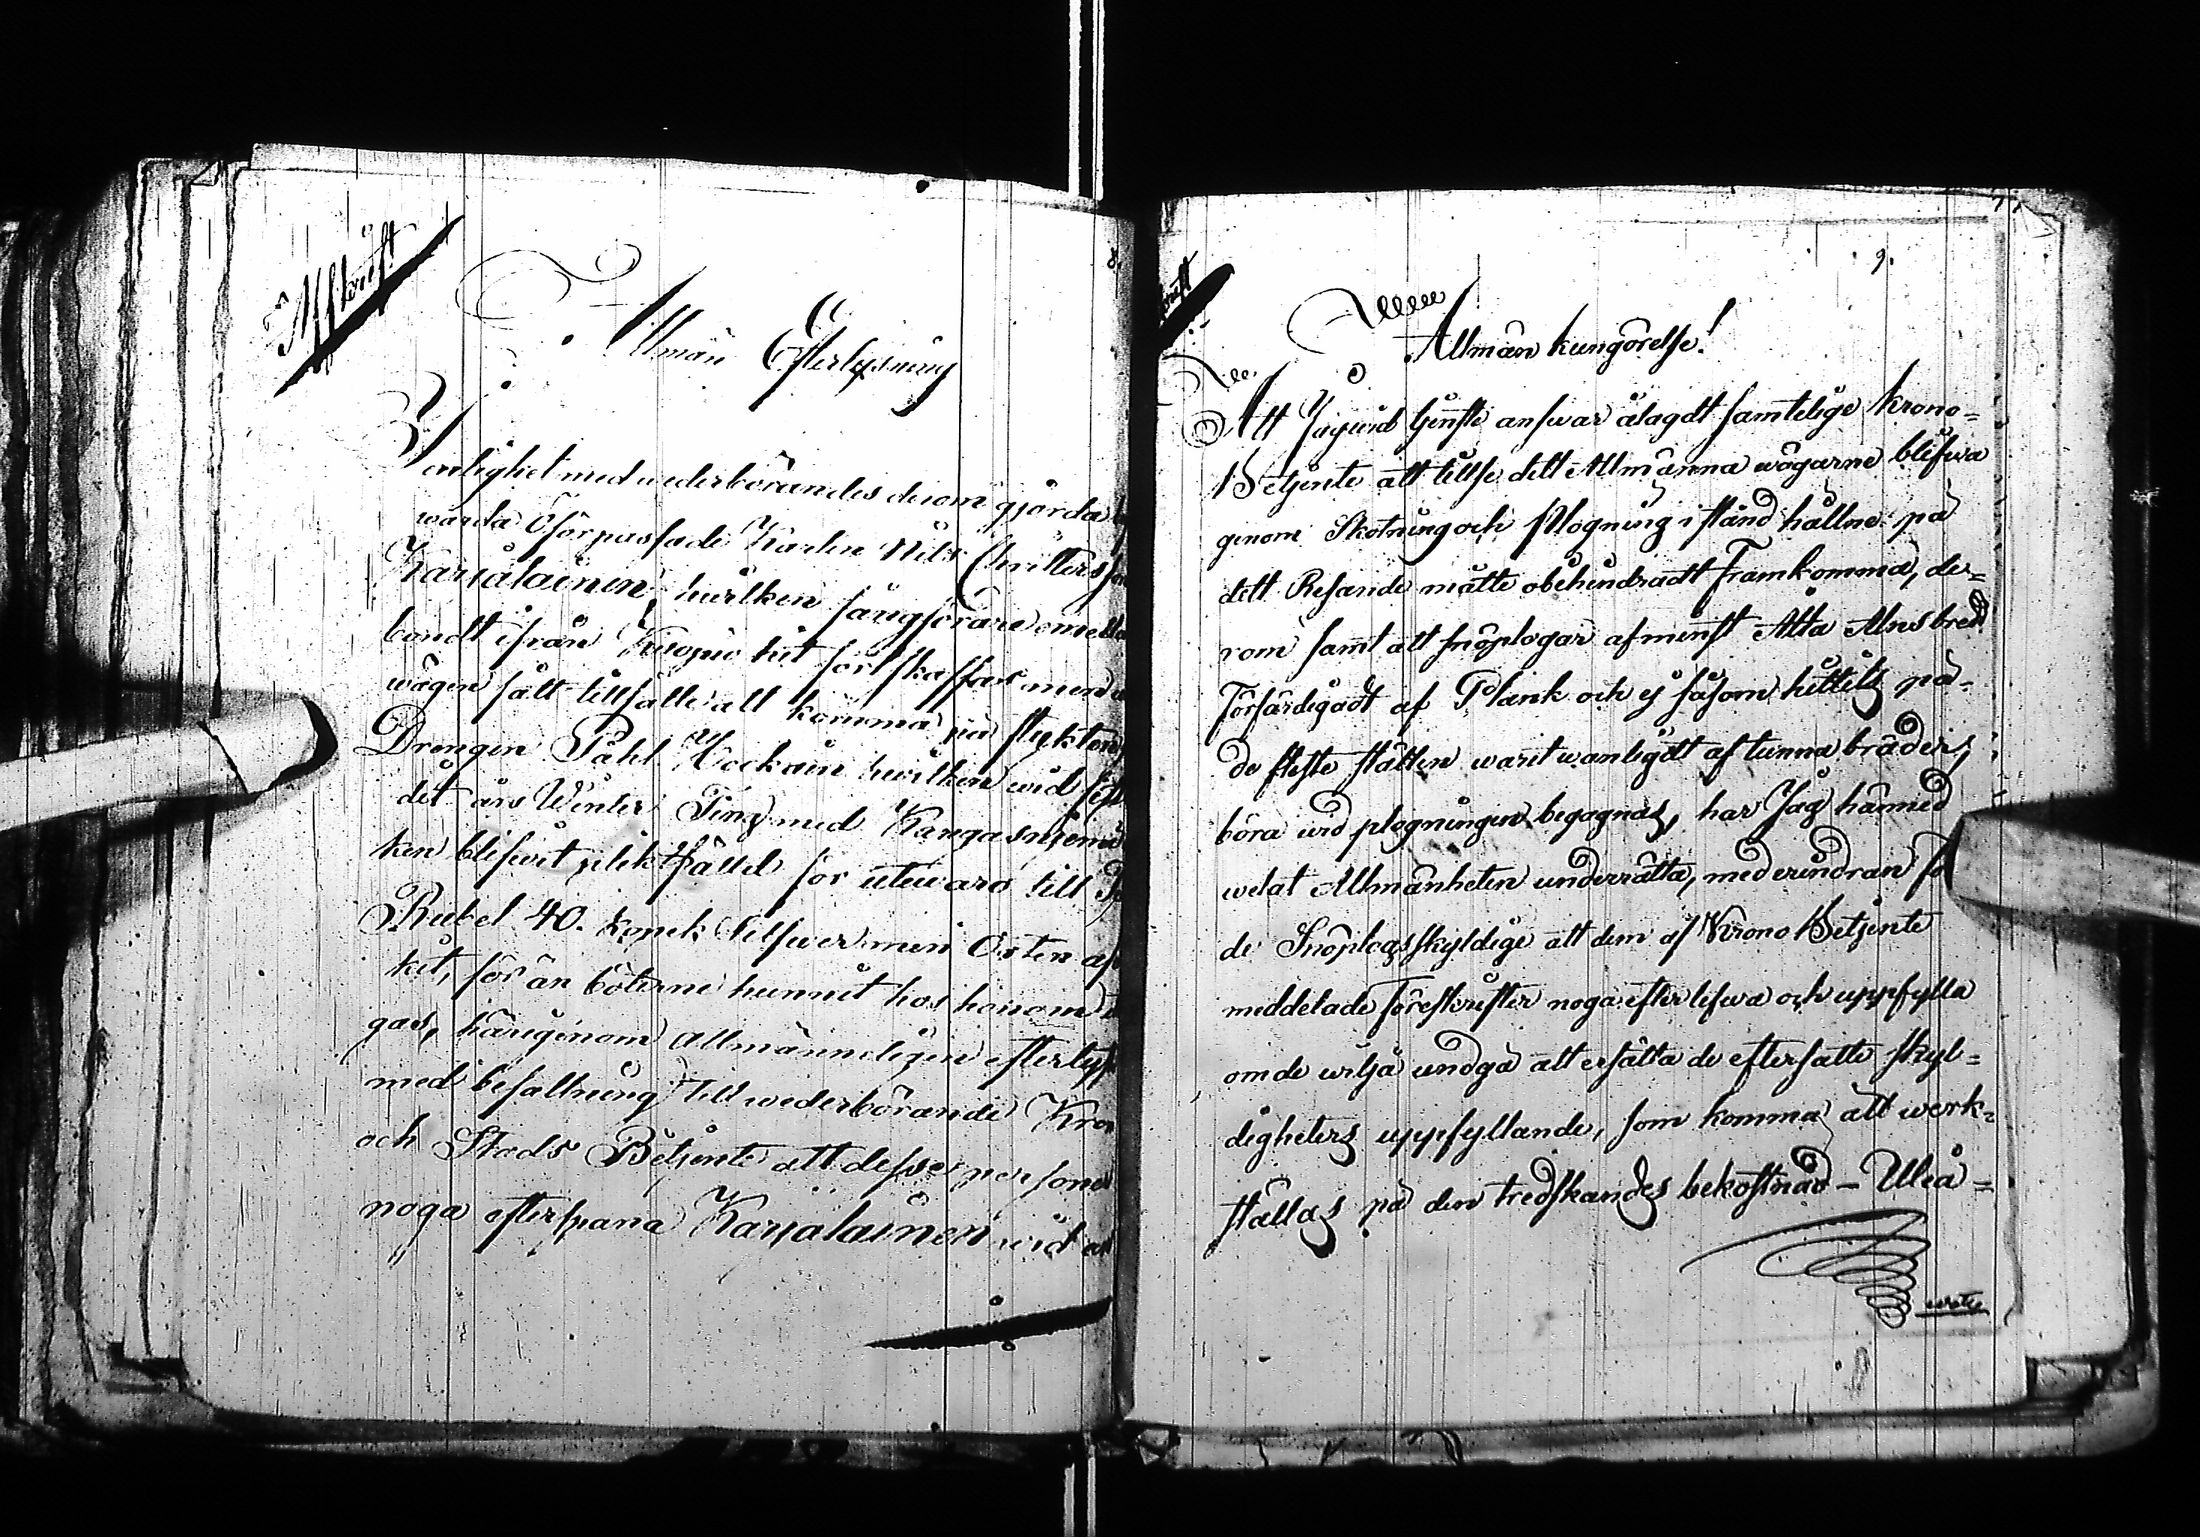 Affskrift
8.
Allmän Efterlysning
I enlighet med wederbörandes derom gjorda
warda Oförpassade Karlen Nils Christersso
Karialainen, hwilken fångförare emella
bandt ifrån Kuopio hit fortskaffas men
wägen fått tillfälle att komma på flykten
Drengen Påhl Kockoin hwilken wid sist
det års Winter Ting med Kangasniemi
ken blifwit pliktfälld för utewaro till
Rubel 40. kopek Silfwer men Orten af
kit, för än böterne hunnit hos honom
gas, härigenom Allmänneligen efterlyst
med befallning till wederbörande Kron
och Stads Betjente att desse person
noga efterspana Karialainen wid
9.
Allmän kungörelse!
Att Jag wid tjenste answar ålagdt samtelige Krono-
Betjente att tillse dett Allmänna wägarne blifwa
genom Skotning och Plogning i stånd hållne på
dett Resande måtte obehindradt Framkomma, de-
rom samt att snöplogar af minst Åtta Alns bredd
Förfärdigadt af Plank och ej såsom hittills på
de fleste ställen warit wanligdt af tunna bräder,
böra wid plogningen begagnas, har Jag härmed
welat Allmänheten underrätta, med erindran
de Snöplogsskyldige att dem af Krono Betjente
meddelade Föreskrifter noga efterlefwa och uppfylla
om de wilja undgå att ersätta de eftersatte skyl-
digheters uppfyllande, som komma att werk-
ställas på den tredskandes bekostnad - Uleå-